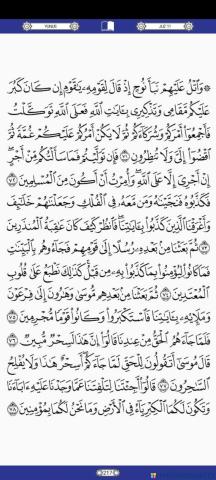 YUNUS
JUZ 11
۞ وَٱتۡلُ عَلَيۡهِمۡ نَبَأَ نُوحٍ إِذۡ قَالَ لِقَوۡمِهِۦ يَٰقَوۡمِ إِن كَانَ كَبُرَ
عَلَيۡكُم مَّقَامِي وَتَذۡكِيرِي بِـَٔايَٰتِ ٱللَّهِ فَعَلَى ٱللَّهِ تَوَكَّلۡتُ
فَأَجۡمِعُوٓاْ أَمۡرَكُمۡ وَشُرَكَآءَكُمۡ ثُمَّ لَا يَكُنۡ أَمۡرُكُمۡ عَلَيۡكُمۡ غُمَّةٗ ثُمَّ
ٱقۡضُوٓاْ إِلَيَّ وَلَا تُنظِرُونِ ٧١ فَإِن تَوَلَّيۡتُمۡ فَمَا سَأَلۡتُكُم مِّنۡ أَجۡرٍۖ
إِنۡ أَجۡرِيَ إِلَّا عَلَى ٱللَّهِۖ وَأُمِرۡتُ أَنۡ أَكُونَ مِنَ ٱلۡمُسۡلِمِينَ ٧٢
فَكَذَّبُوهُ فَنَجَّيۡنَٰهُ وَمَن مَّعَهُۥ فِي ٱلۡفُلۡكِ وَجَعَلۡنَٰهُمۡ خَلَٰٓئِفَ
وَأَغۡرَقۡنَا ٱلَّذِينَ كَذَّبُواْ بِـَٔايَٰتِنَاۖ فَٱنظُرۡ كَيۡفَ كَانَ عَٰقِبَةُ ٱلۡمُنذَرِينَ
٧٣ ثُمَّ بَعَثۡنَا مِنۢ بَعۡدِهِۦ رُسُلًا إِلَىٰ قَوۡمِهِمۡ فَجَآءُوهُم بِٱلۡبَيِّنَٰتِ
فَمَا كَانُواْ لِيُؤۡمِنُواْ بِمَا كَذَّبُواْ بِهِۦ مِن قَبۡلُۚ كَذَٰلِكَ نَطۡبَعُ عَلَىٰ قُلُوبِ
ٱلۡمُعۡتَدِينَ ٧٤ ثُمَّ بَعَثۡنَا مِنۢ بَعۡدِهِم مُّوسَىٰ وَهَٰرُونَ إِلَىٰ فِرۡعَوۡنَ
وَمَلَإِيْهِۦ بِـَٔايَٰتِنَا فَٱسۡتَكۡبَرُواْ وَكَانُواْ قَوۡمٗا مُّجۡرِمِينَ ٧٥
فَلَمَّا جَآءَهُمُ ٱلۡحَقُّ مِنۡ عِندِنَا قَالُوٓاْ إِنَّ هَٰذَا لَسِحۡرٞ مُّبِينٞ ٧٦
قَالَ مُوسَىٰٓ أَتَقُولُونَ لِلۡحَقِّ لَمَّا جَآءَكُمۡۖ أَسِحۡرٌ هَٰذَا وَلَا يُفۡلِحُ
ٱلسَّٰحِرُونَ ٧٧ قَالُوٓاْ أَجِئۡتَنَا لِتَلۡفِتَنَا عَمَّا وَجَدۡنَا عَلَيۡهِ ءَابَآءَنَا
وَتَكُونَ لَكُمَا ٱلۡكِبۡرِيَآءُ فِي ٱلۡأَرۡضِ وَمَا نَحۡنُ لَكُمَا بِمُؤۡمِنِينَ ٧٨
217